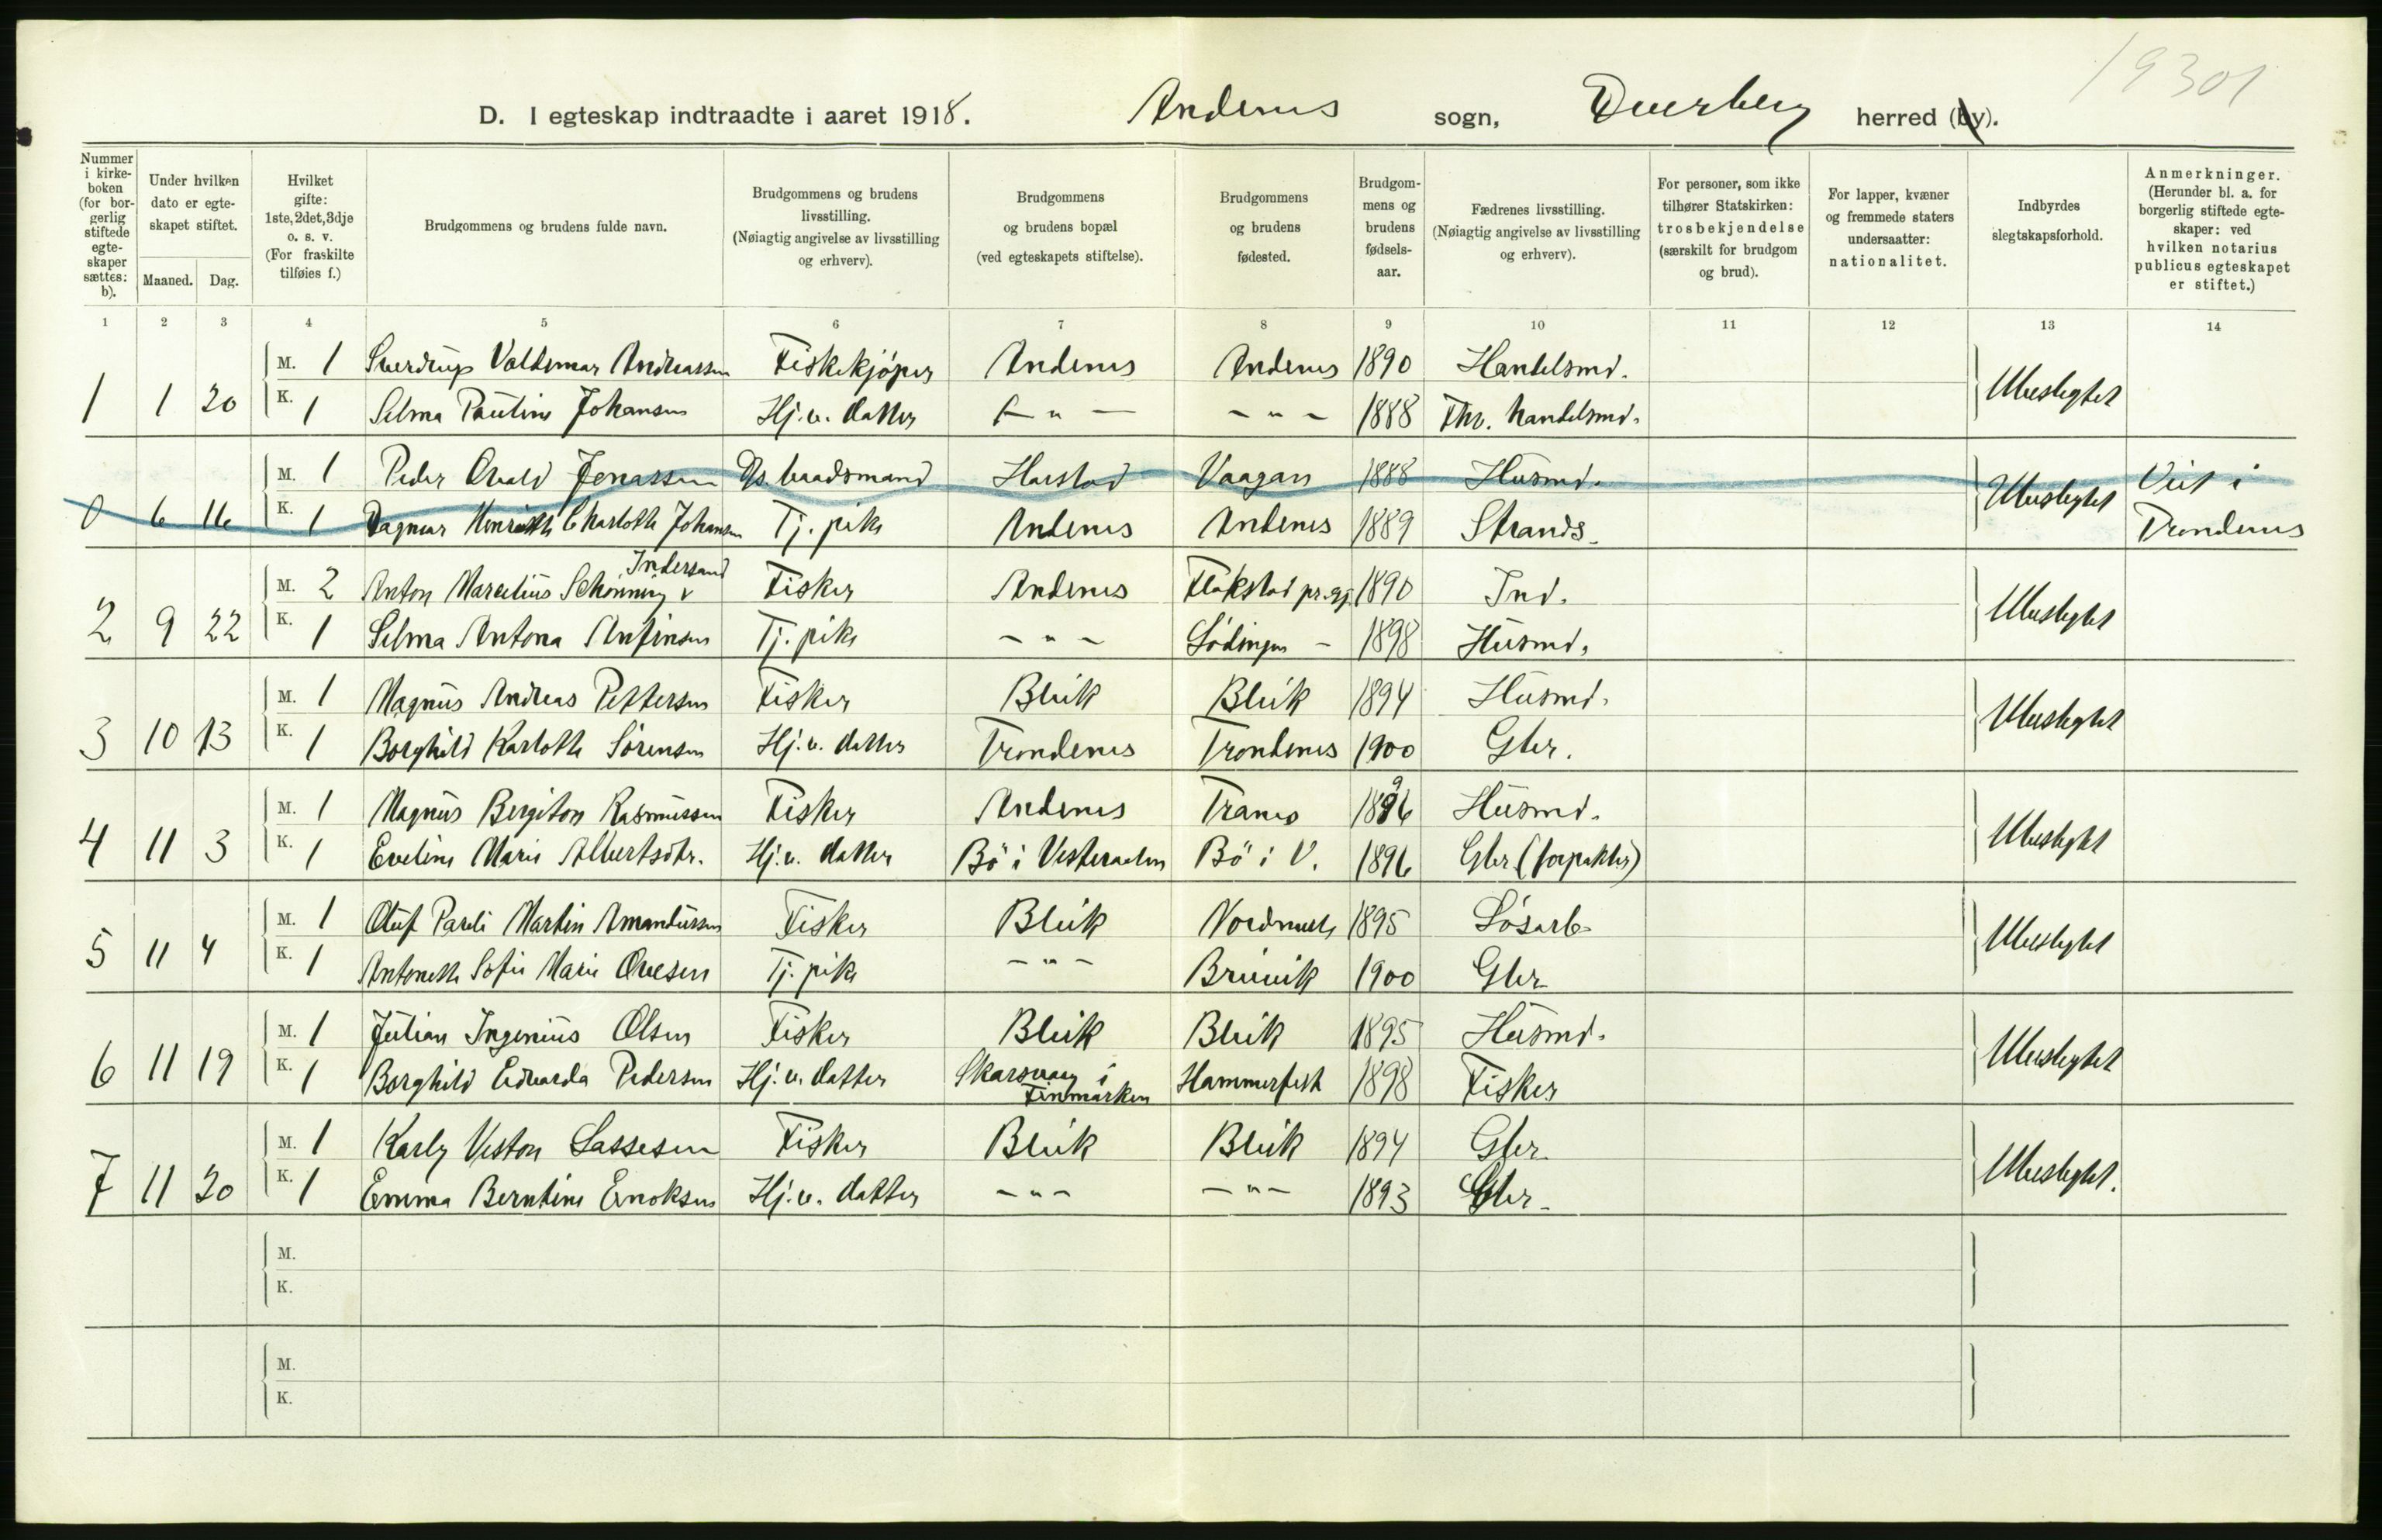 19301
D. I egteskap indtraadte i aaret 1918. Andenes sogn, Dverberg herred (by).
Nummer i kirkeboken (for borgerlig stiftede egteskaper sættes: b).
Under hvilken dato er egteskapet stiftet.
Maaned. Dag.
Hvilket gifte: 1ste, 2det, 3dje o. s. v. (For fraskilte tilføies f.)
Brudgommens og brudens fulde navn.
Brudgommens og brudens livsstilling. (Nøiagtig angivelse av livsstilling og erhverv).
Brudgommens og brudens bopæl (ved egteskapets stiftelse).
Brudgommens og brudens fødested.
Brudgommens og brudens fødselsaar.
Fædrenes livsstilling. (Nøiagtig angivelse av livsstilling og erhverv).
For personer, som ikke tilhører Statskirken: trosbekjendelse (særskilt for brudgom og brud).
For lapper, kvæner og fremmede staters undersaatter: nationalitet.
Indbyrdes slegtskapsforhold.
Anmerkninger. (Herunder bl. a. for borgerlig stiftede egteskaper: ved hvilken notarius publicus egteskapet er stiftet.)
1 2 3 4 5 6 7 8 9 10 11 12 13 14
M. 1 Sverdrup Valdemar Andreassen Fiskekjøper Andenes Andenes 1890 Handelsmd.
1 1 20 K. 1 Selma Pauline Johansen Hj.v. datter — " — — " — 1888 Fhv. handelsmd. Ubeslegtet
M. 1 Peder Osvald Jenassen baadsmand Harstad Vaagan 1888 Husmd. Viet i
0 6 16 K. 1 Dagmar Henriette Charlotte Johansen Tj. pike Andenes Andenes 1889 Strands. Ubeslegtet Trondenes
Indersand
M. 2 Anton Marcelius Schønning v Fisker Andenes Flakstad pr.gj. 1890 Ind.
2 9 22 K. 1 Selma Antona Anfinsen Tj. pike — " — Lødingen — 1898 Husmd. Ubeslegtet
M. 1 Magnus Andreas Pettersen Fisker Bleik Bleik 1894 Husmd.
3 10 13 K. 1 Borghild Karlotte Sørensen Hj.v. datter Trondenes Trondenes 1900 Gbr. Ubeslegtet
M. 1 Magnus Bergiton Rasmussen Fisker Andenes Tranø 1896 Husmd.
4 11 3 K. 1 Eveline Marie Albertsdtr. Hj.v. datter Bö i Vesteraalen Bö i V. 1896 Gbr (forpakter) Ubeslegtet
M. 1 Oluf Pareli Martin Amandussen Fisker Bleik Nordmela 1895 Løsarb.
5 11 4 K. 1 Antonette Sofie Marie Ovesen Tj. pike — " — Breivik 1900 Gbr. Ubeslegtet
M. 1 Julian Ingenius Olsen Fisker Bleik Bleik 1895 Husmd.
6 11 19 K. 1 Borghild Edvarda Pedersen Hj.v. datter Skarsvaag i Hammerfest 1898 Fisker Ubeslegtet
Finmarken
M. 1 Karly Veston Lassesen Fisker Bleik Bleik 1894 Gbr.
7 11 20 K. 1 Emma Berntine Enoksen Hj.v. datter — " — — " — 1893 Gbr. Ubeslegtet.
M.
K.
M.
K.